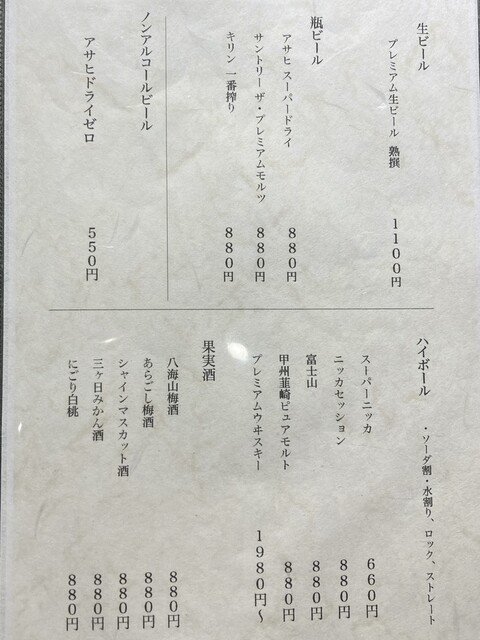 生ビール
プレミアム生ビール 熟撰 1100円
瓶ビール
アサヒ スーパードライ 880円
サントリー ザ・プレミアムモルツ 880円
キリン 一番搾り 880円
ノンアルコールビール
アサヒドライゼロ 550円
ハイボール ・ソーダ割・水割り、ロック、ストレート
スーパーニッカ 660円
ニッカセッション 880円
富士山 880円
甲州韮崎ピュアモルト 880円
プレミアムウヰスキー 1980円〜
果実酒
八海山梅酒 880円
あらごし梅酒 880円
シャインマスカット酒 880円
三ヶ日みかん酒 880円
にごり白桃 880円